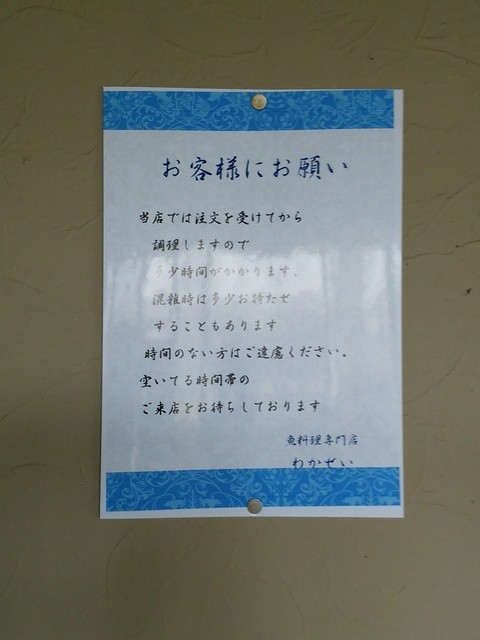 お客様にお願い
当店では注文を受けてから
調理しますので
多少時間がかかります、
混雑時は多少お待たせ
することもあります
時間のない方はご遠慮ください。
空いてる時間帯の
ご来店をお待ちしております
魚料理専門店
わかせい